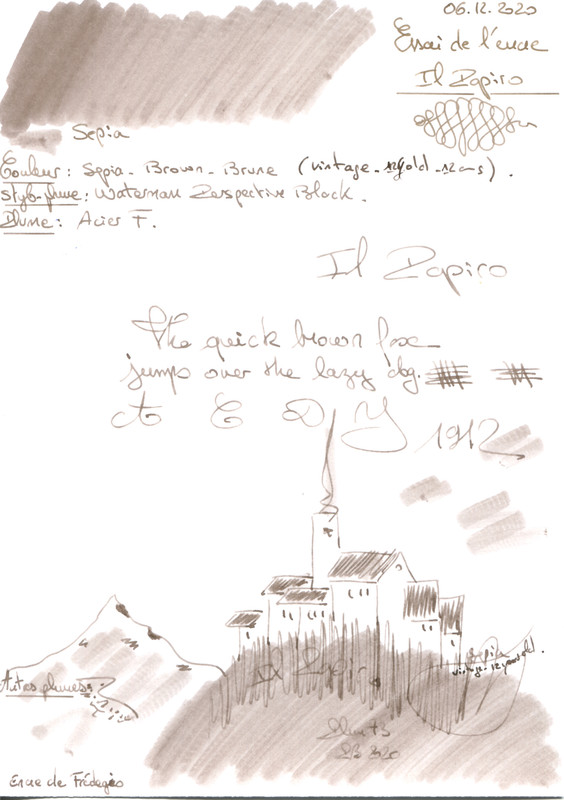 06.12.2020
Essai de l'encre
Il Papiro
Sepia
Couleur : Sepia - Brown - Brune (vintage - 12 gold - 12 ans).
Stylo-plume : Waterman Perspective Black.
Plume : Acier F.
Il Papiro
The quick brown fox
jumps over the lazy dog.
A C D Y 1912
Il Papiro
Sepia
vintage - 12 years old.
Autres plumes :
Encre de Frédegéo